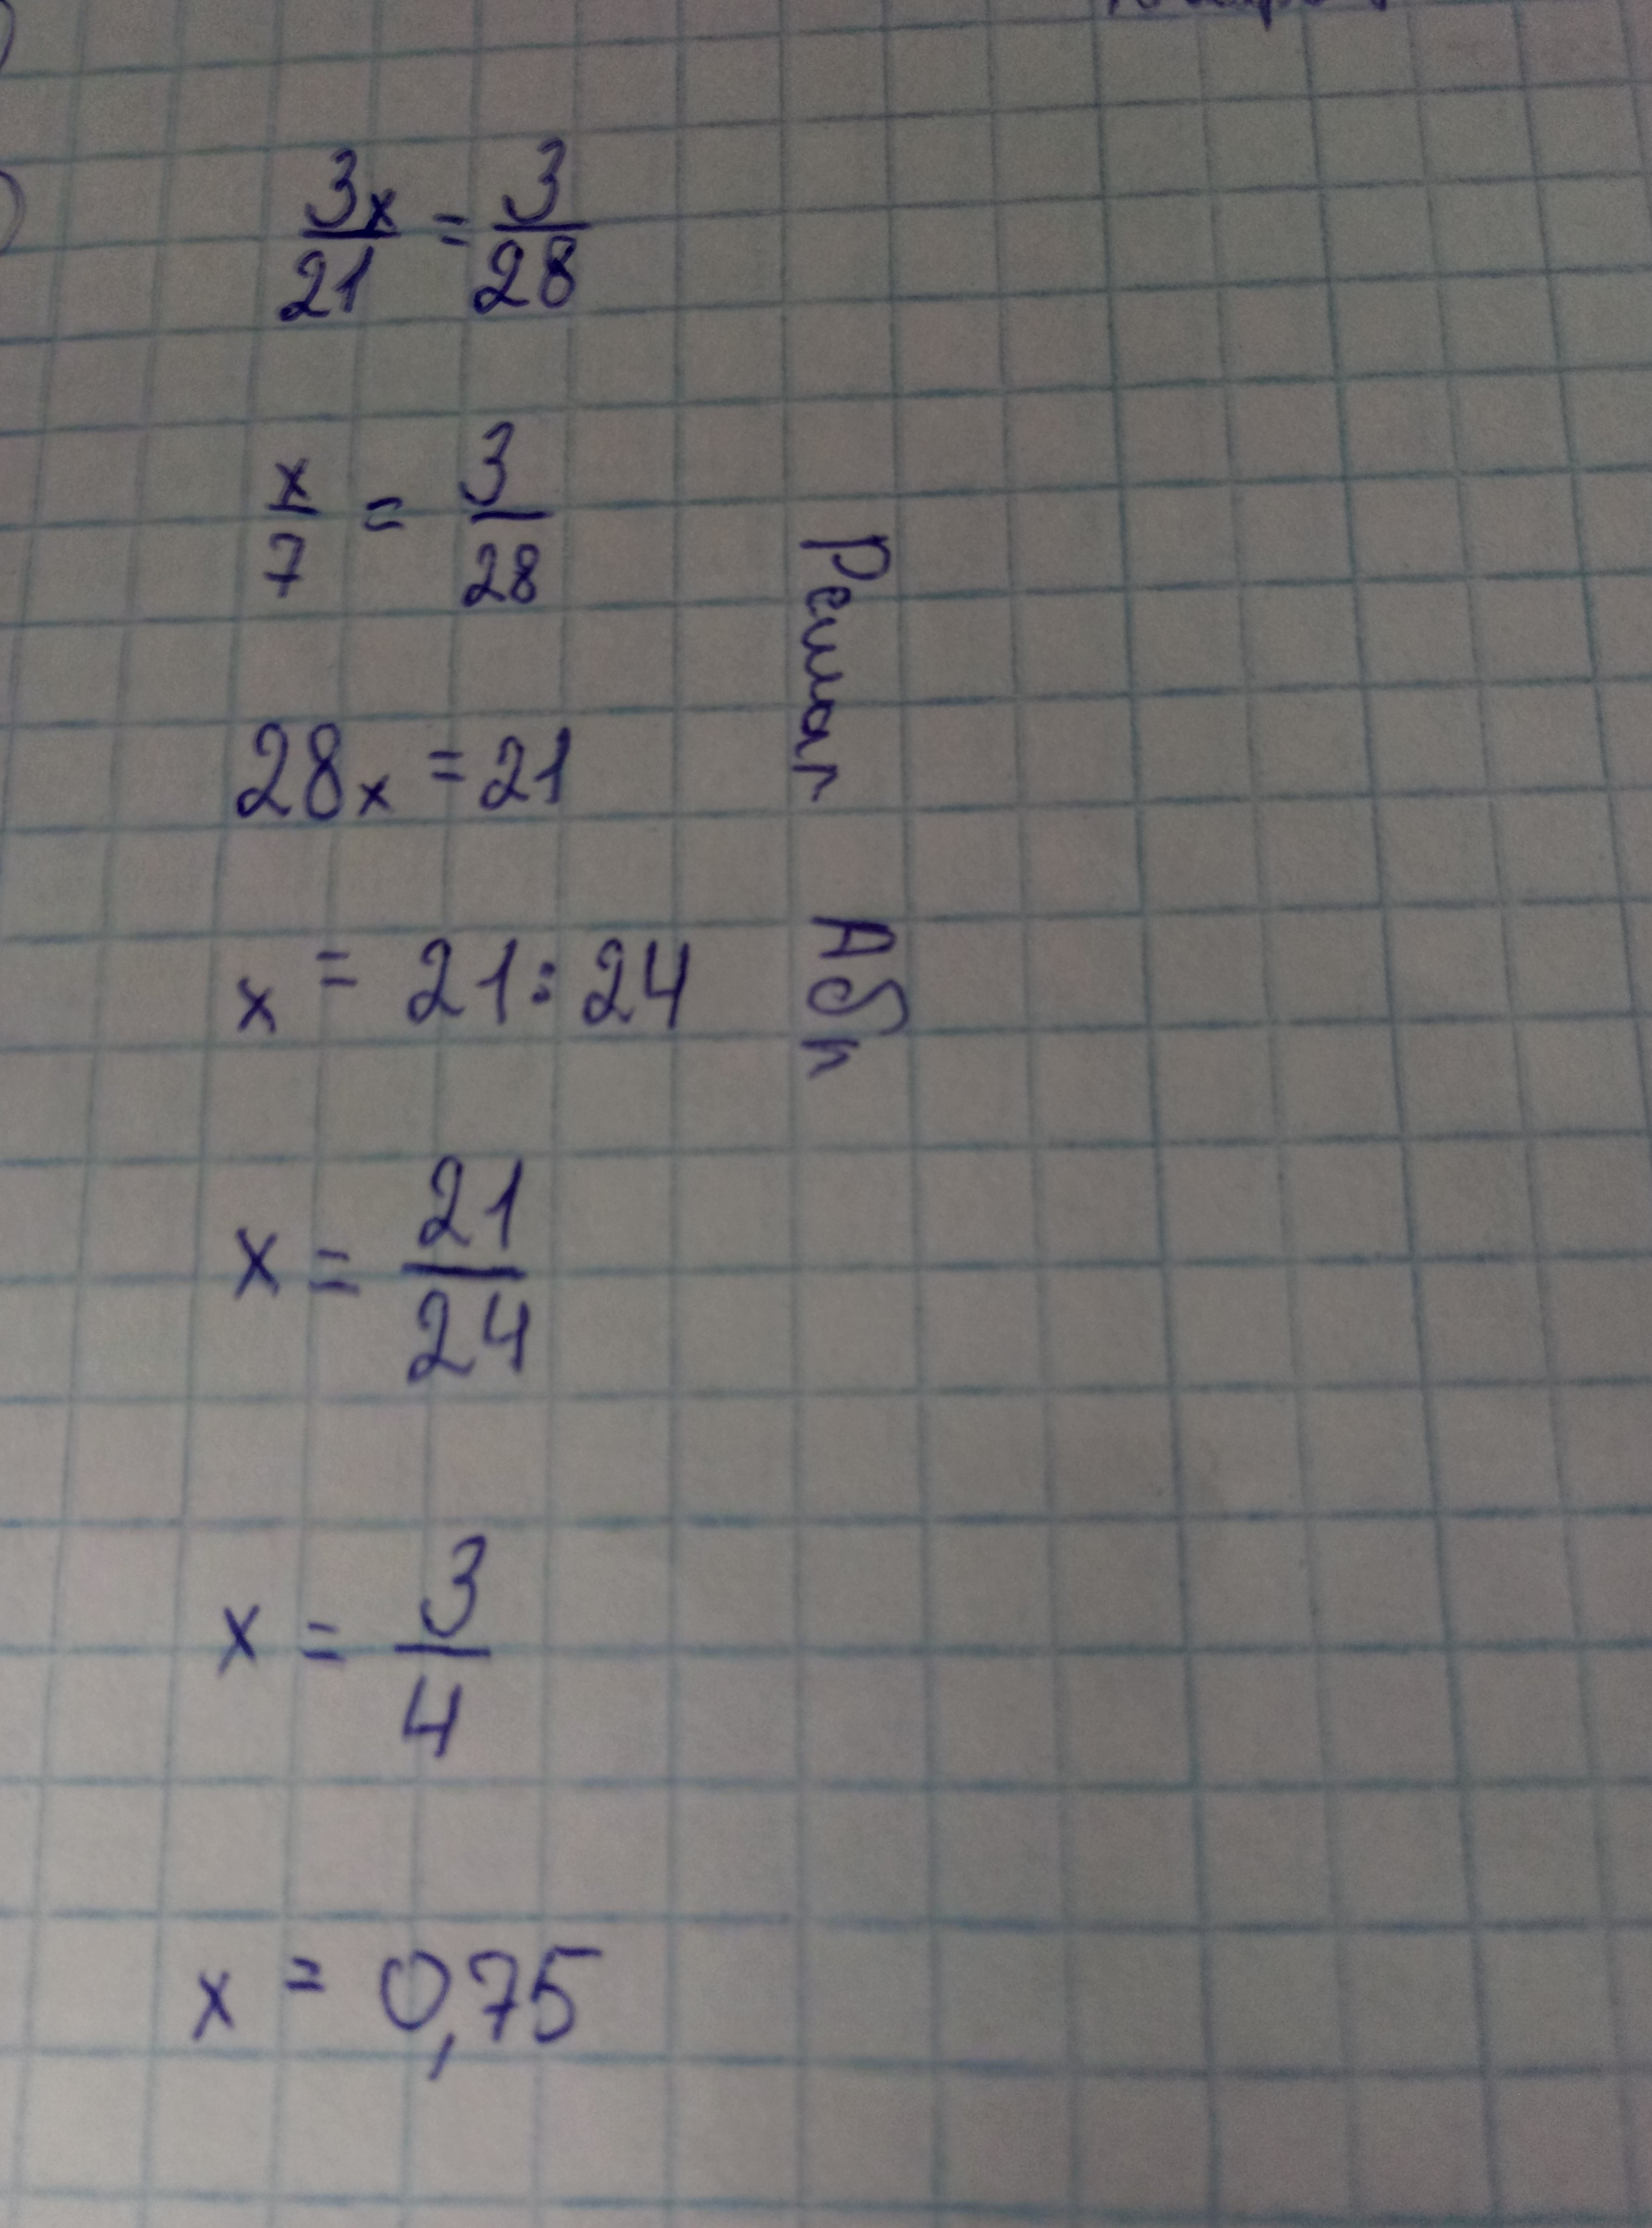 3x/21 = 3/28
x/7 = 3/28
28x = 21
x = 21:24
x = 21/24
x = 3/4
x = 0,75
Решал